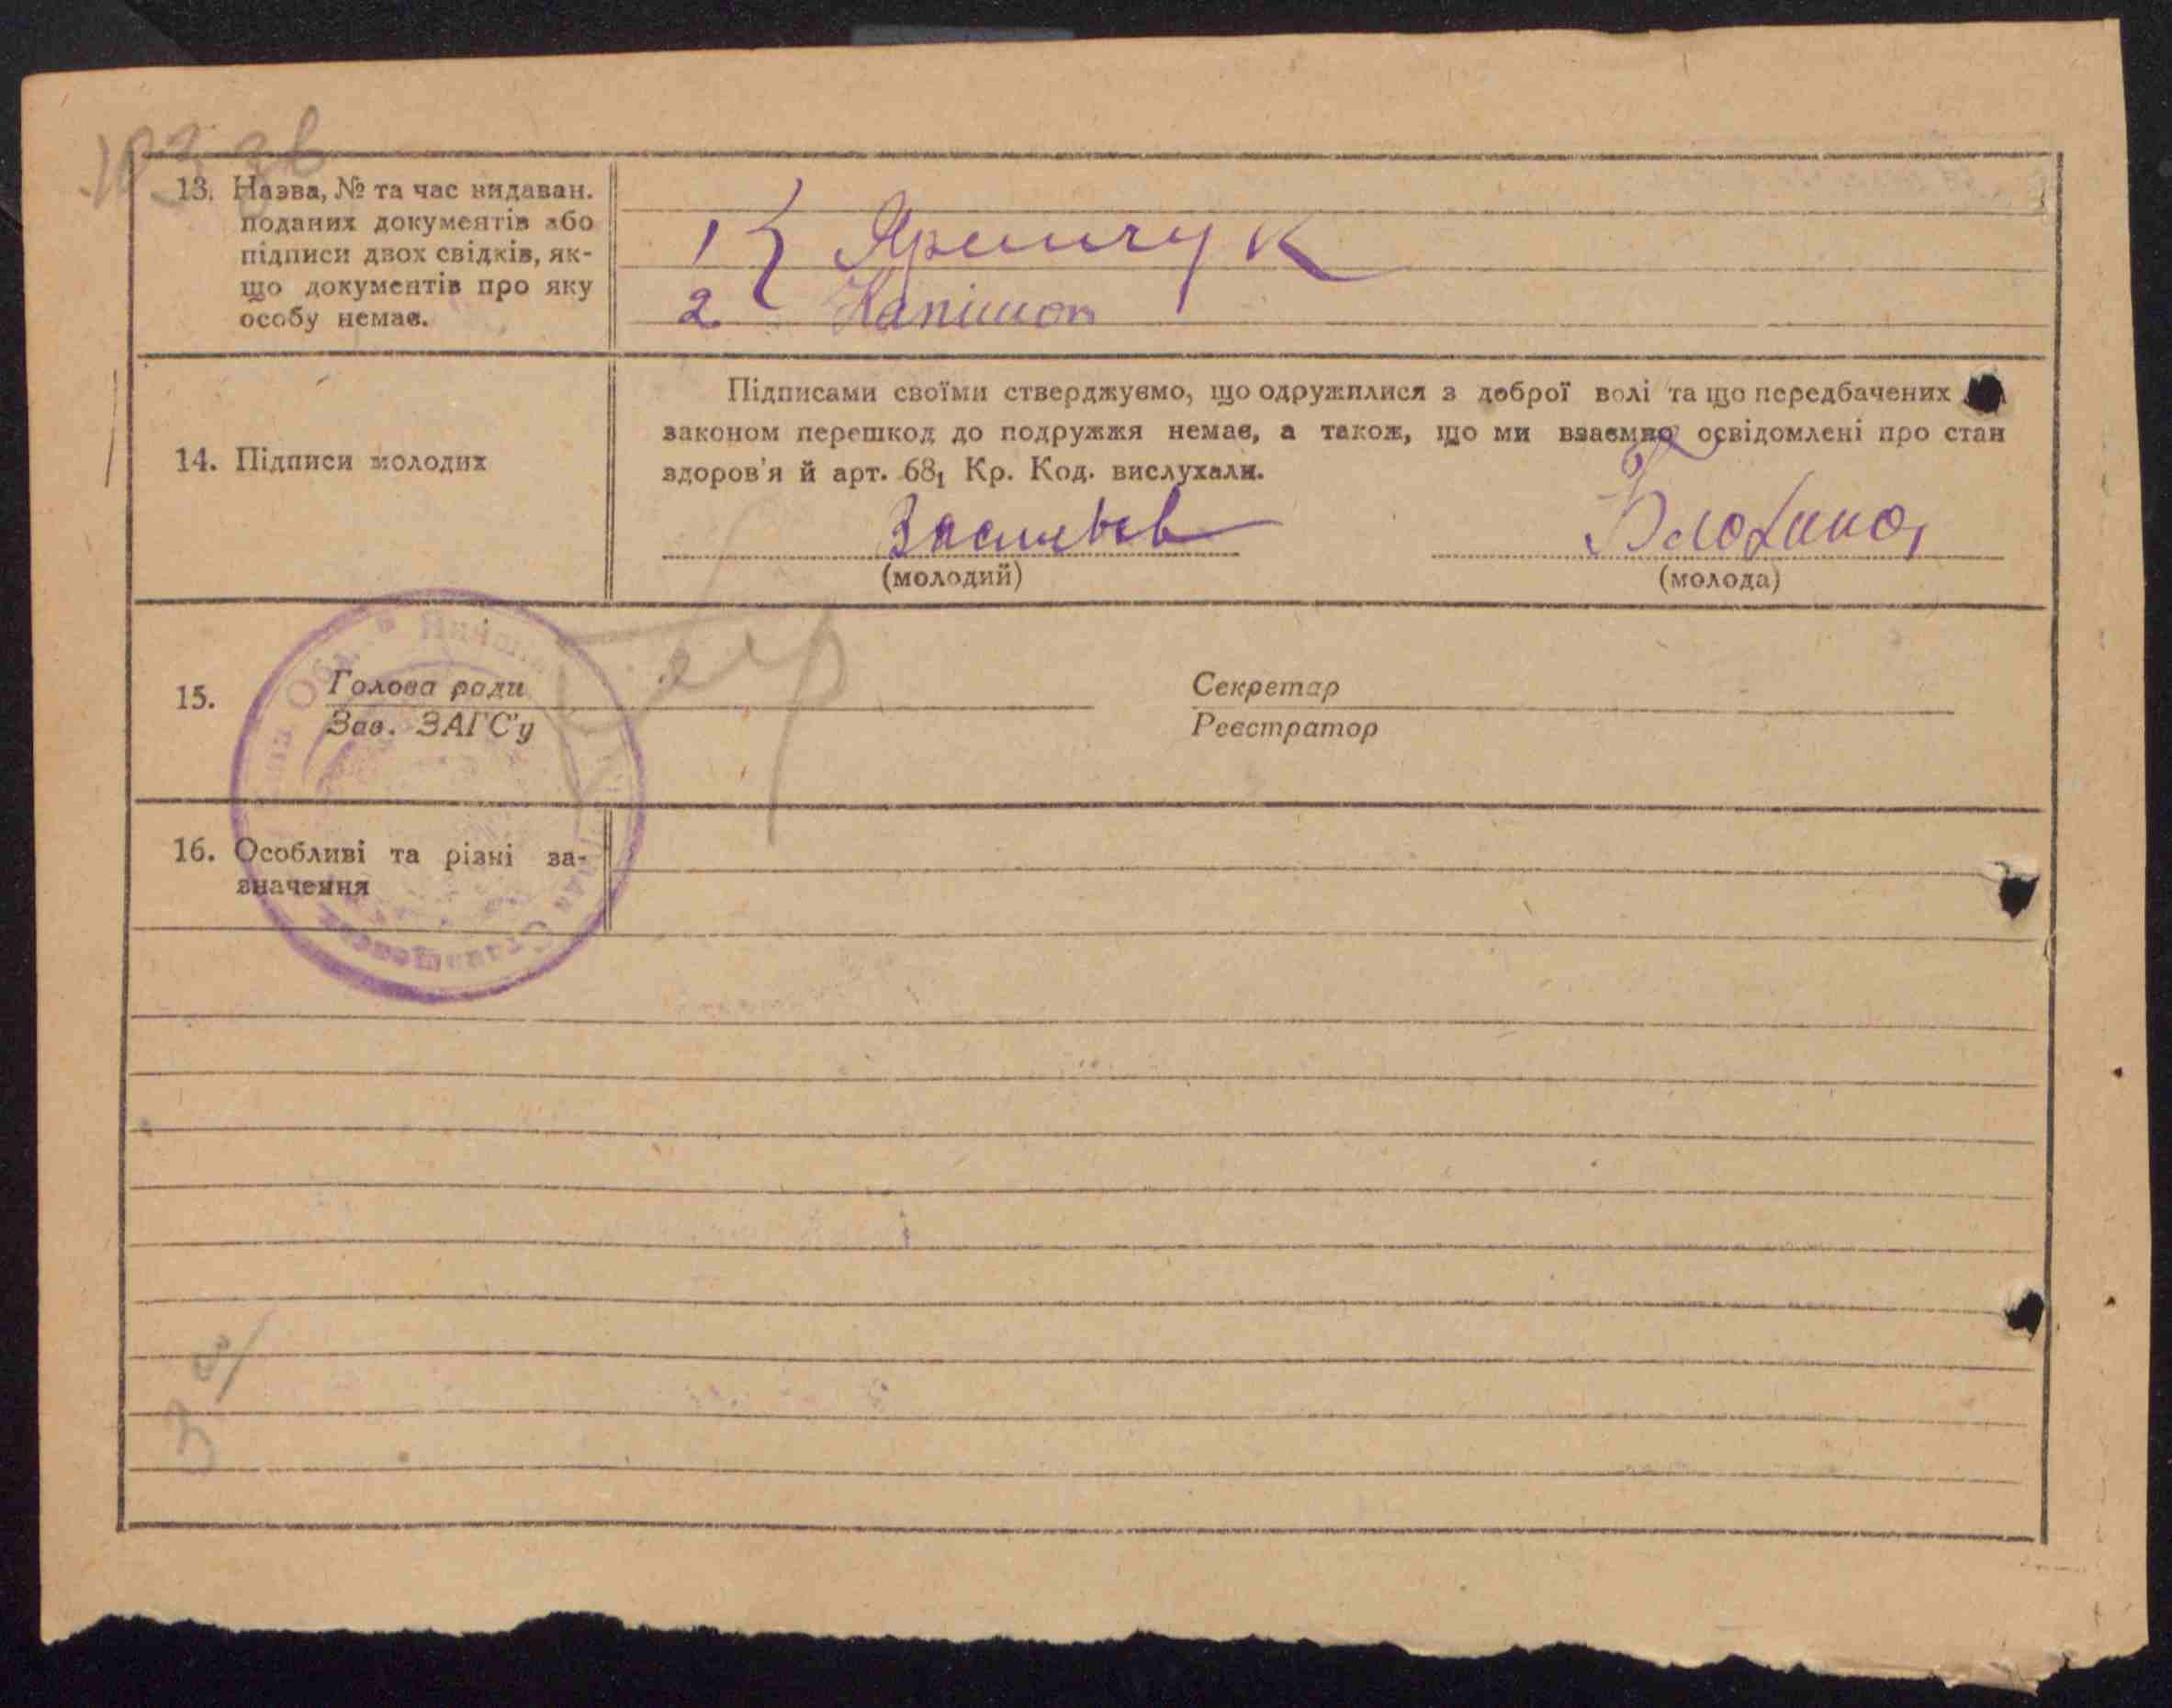 103 зв
13. Назва, № та час видаван.
поданих документів або
підписи двох свідків, як-
що документів про яку
особу немає.
1 } Яремчук
2
14. Підписи молодих
Підписами своїми стверджуємо, що одружилися з доброї волі та що передбачених
законом перешкод до подружжя немає, а також, що ми взаємно освідомлені про стан
здоров'я й арт. 68₁ Кр. Код. вислухали.
(молодий)
Блохина
(молода)
15.
Голова ради
Зав. ЗАГС'у
Секретар
Реєстратор
16. Особливі та різні за-
значення